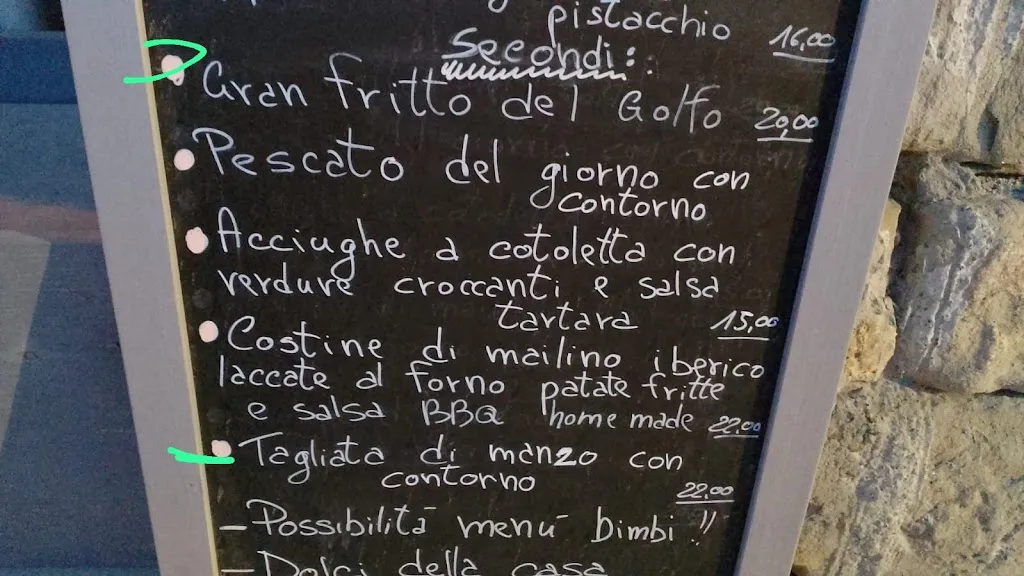 pistacchio 16,00
Secondi:
Gran fritto del Golfo 20,00
Pescato del giorno con
contorno
Acciughe a cotoletta con
verdure croccanti e salsa
tartara 15,00
Costine di mailino iberico
laccate al forno patate fritte
e salsa BBQ home made 22,00
Tagliata di manzo con
contorno 22,00
- Possibilità menù bimbi !!
- Dolci della casa